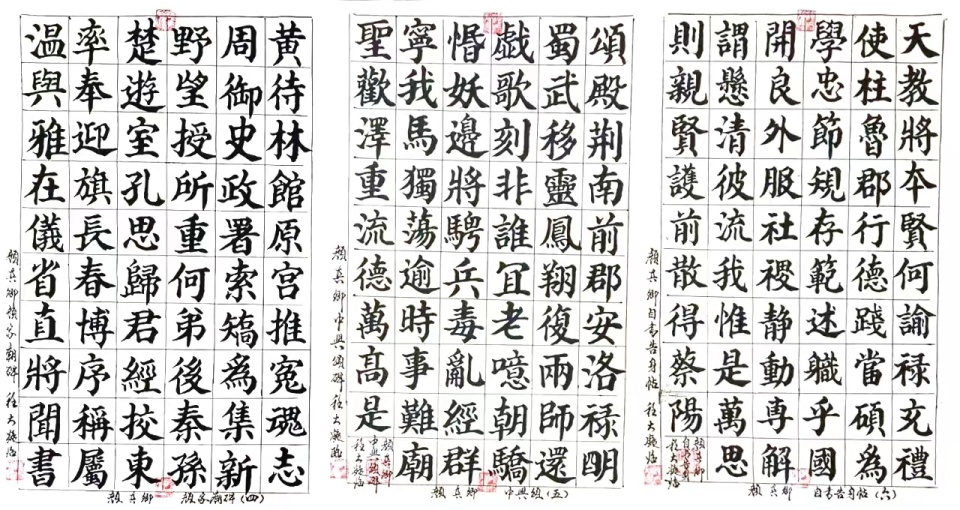 黄待林館原宮推冤魂志
周御史政署索矯為集新
野望授所重何弟後秦孫
楚遊室孔思歸君經挍東
率奉迎旗長春博序稱屬
温與雅在儀省直將聞書
顏真卿顏家廟碑 程大臨
顏真卿 顏家廟碑(四)
頌殿荆南前郡安洛禄明
蜀武移靈鳳翔復兩師還
戲歌刻非誰宜老噫朝驕
惛妖邊將騁兵毒亂經群
寧我馬獨蕩逾時事難廟
聖歡澤重流德萬高是
顏真卿中興頌碑 程大臨
顏真卿 中興頌(五)
天教將本賢何諭禄禮
使柱魯郡行德踐當碩為
學忠節規存範述職乎國
開良外服社禝静動専解
謂懸清彼流我惟是萬思
則親賢護前散得蔡陽
顏真卿自書告身帖 程大臨
顏真卿 自書告身帖(六)